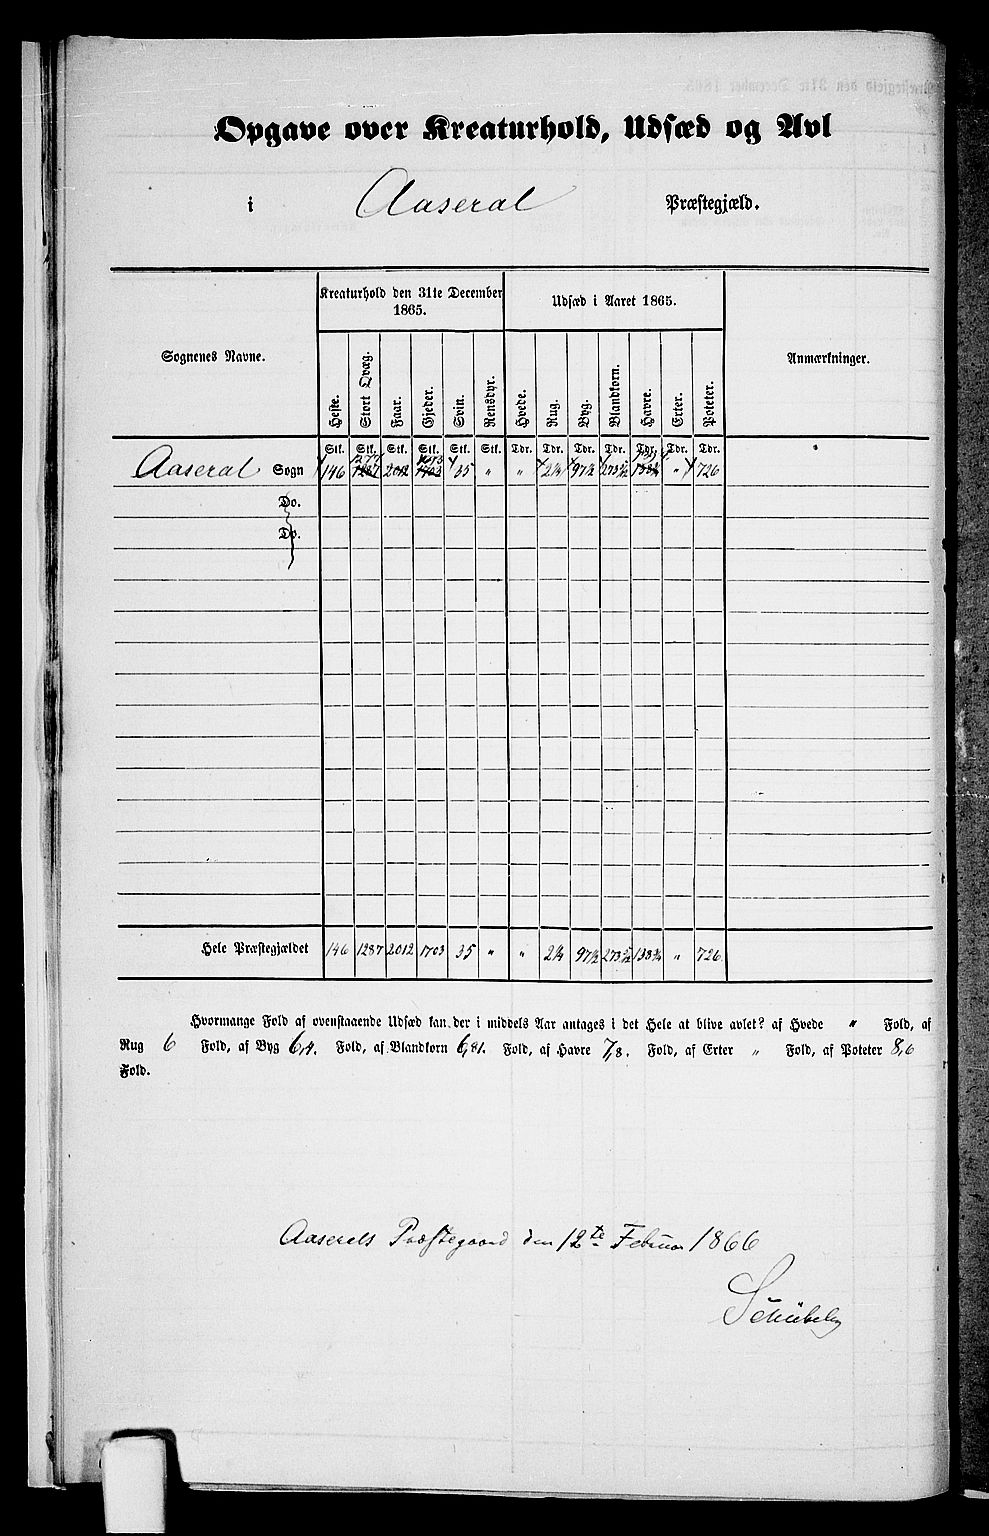 Opgave over Kreaturhold, Udsæd og Avl
i Aaseral Præstegjæld.
Sognenes Navne.
Kreaturhold den 31te December 1865.
Udsæd i Aaret 1865.
Anmærkninger.
Heste. Stort Qvæg. Faar. Gjeder. Svin. Rensdyr. Hvede. Rug. Byg. Blandkorn. Havre. Erter. Poteter.
Stk. Stk. Stk. Stk. Stk. Stk. Tdr. Tdr. Tdr. Tdr. Tdr. Tdr. Tdr.
1277
Aaseral Sogn 146 1287 2012 1703 35 " " 2¼ 97½ 133¾ " 726
Do.
Do.
Hele Præstegjældet 146 1287 2012 1703 35 " " 2¼ 97½ 133¾ " 726.
Hvormange Fold af ovenstaaende Udsæd kan der i middels Aar antages i det Hele at blive avlet? af Hvede " Fold, af
Rug 6 Fold, af Byg 6,4. Fold, af Blandkorn 6,81. Fold, af Havre 7,8. Fold, af Erter " Fold, af Poteter 8,6
Fold.
Aaserals Præstegaard den 12te Februar 1866